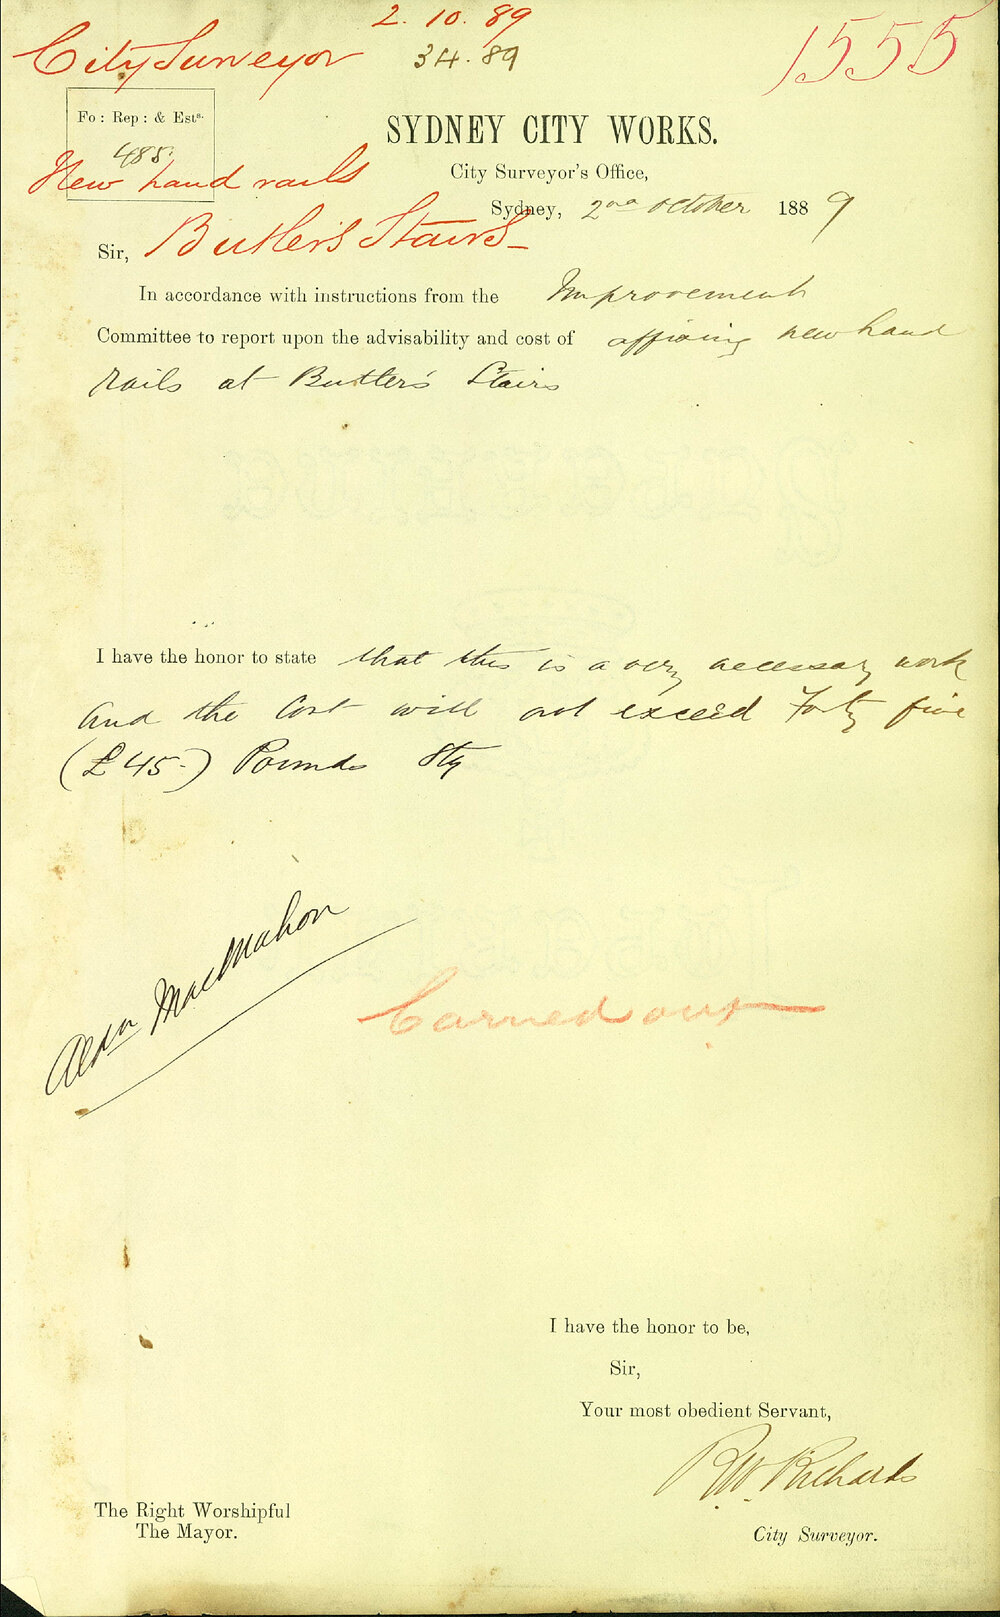 2. 10. 89
City Surveyor 34.89
1555
Fo: Rep: & Ests.
485.
New hand rails
Butler's Stairs
SYDNEY CITY WORKS.
City Surveyor's Office,
Sydney, 2nd October 1889
Sir,
In accordance with instructions from the Improvement
Committee to report upon the advisability and cost of affixing new hand
rails at Butler's Stairs
I have the honor to state that this is a very necessary work
and the Cost will not exceed Forty five
(£45-) Pounds Stg
Aldn MacMahon
Carried out
I have the honor to be,
Sir,
Your most obedient Servant,
R.W. Richards
City Surveyor.
The Right Worshipful
The Mayor.